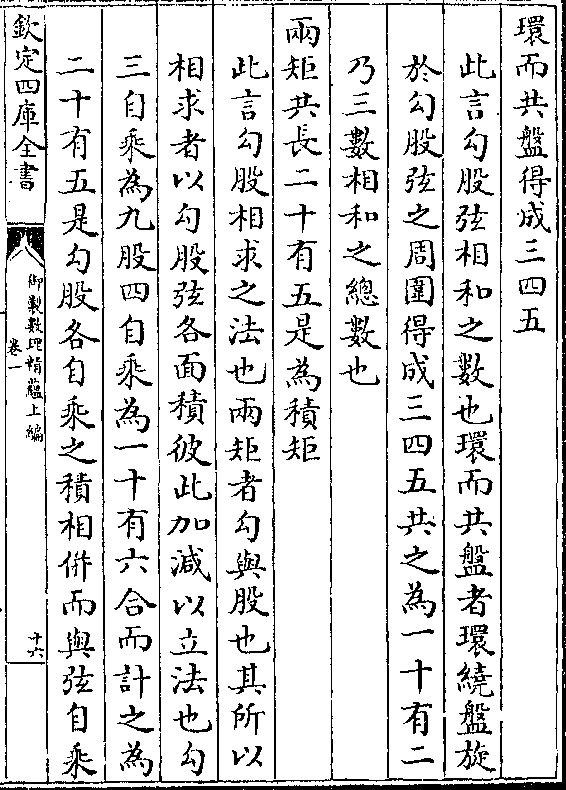 環而共盤得成三四五
此言勾股弦相和之數也環而共盤者環繞盤旋
於勾股弦之周圍得成三四五共之為一十有二
乃三數相和之總數也
兩矩共長二十有五是為積矩
此言勾股相求之法也兩矩者勾與股也其所以
相求者以勾股弦各面積彼此加減以立法也勾
三自乘為九股四自乘為一十有六合而計之為
二十有五是勾股各自乘之積相併而與弦自乘
欽定四庫全書
御製數理精蘊上編
卷一
十六